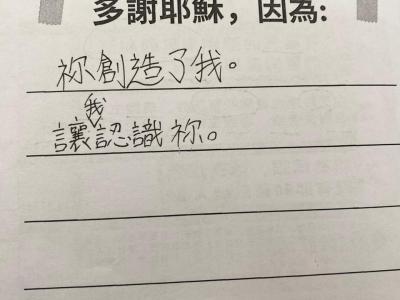 多謝耶穌，因為:
祢創造了我。
讓我認識祢。